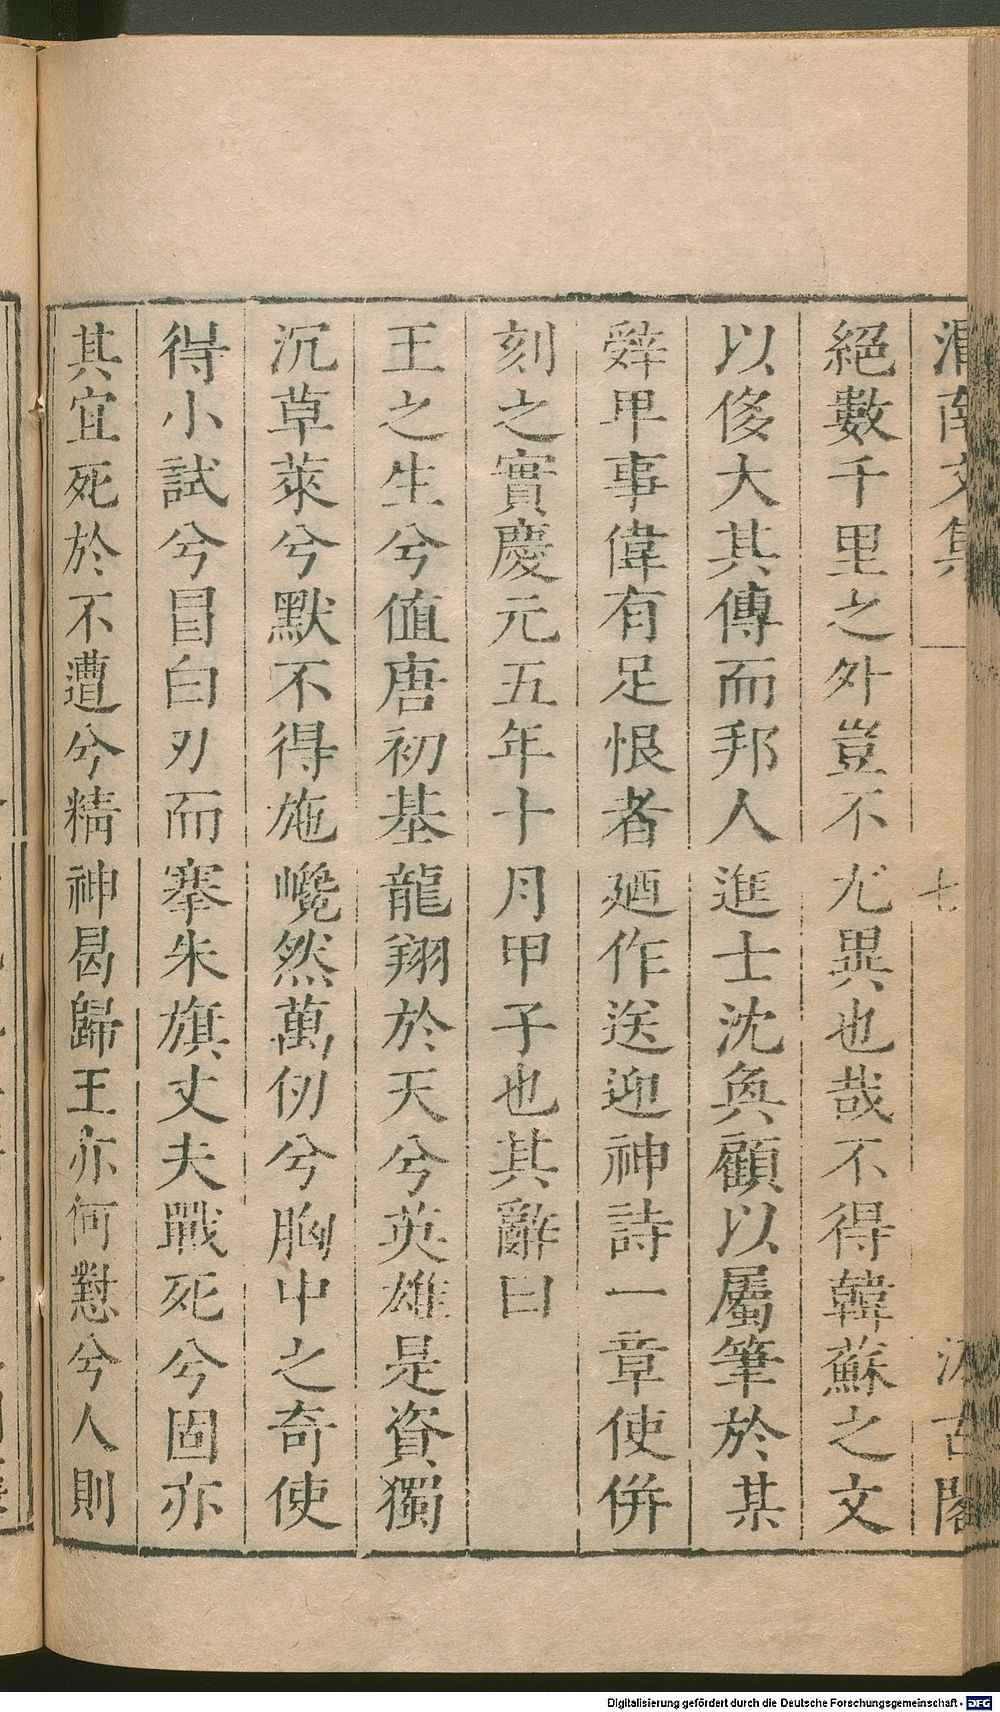 渭南文集 七 汲古閣
絕數千里之外豈不尤異也哉不得韓蘇之文
以侈大其傳而邦人進士沈奐顧以屬筆於某
辤甲事偉有足恨者廼作送迎神詩一章使併
刻之實慶元五年十月甲子也其辭曰
王之生兮值唐初基龍翔於天兮英雄是資獨
沉草萊兮默不得施巉然萬仞兮胸中之奇使
得小試兮冒白刃而搴朱旗丈夫戰死兮固亦
其宜死於不遭兮精神曷歸王亦何懟兮人則
Digitalisierung gefördert durch die Deutsche Forschungsgemeinschaft - DFG